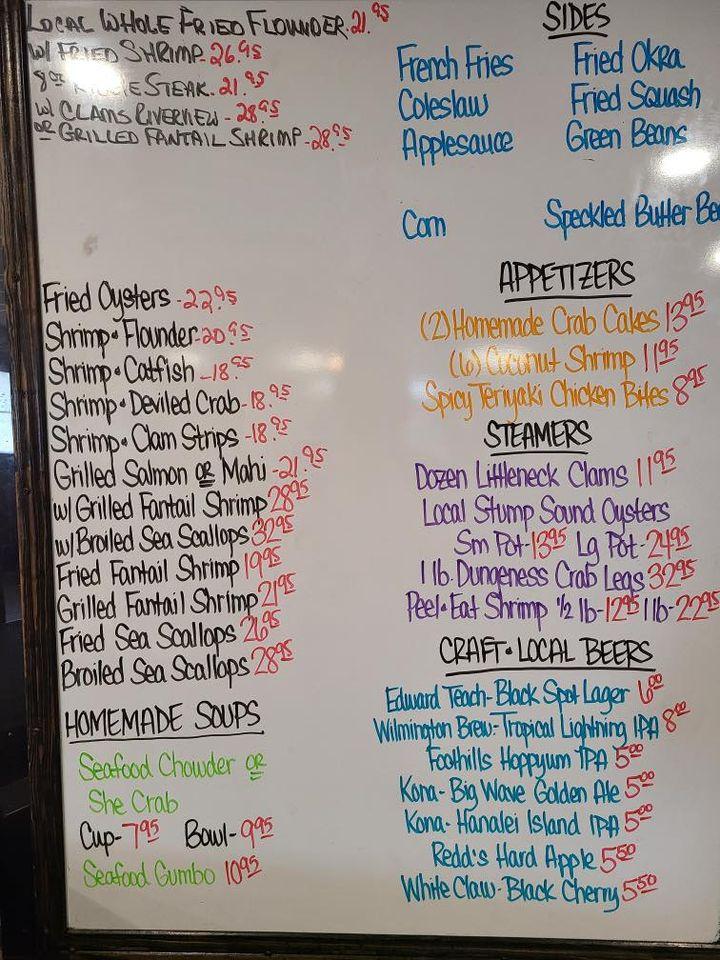 LOCAL WHOLE FRIED FLOUNDER.21.95
W/ FRIED SHRIMP-26.95
8oz STEAK.21.95
W/ CLAMS RIVERVIEW-28.95
OR GRILLED FANTAIL SHRIMP-28.95
Fried Oysters-22.95
Shrimp•Flounder-20.95
Shrimp•Catfish-18.95
Shrimp•Deviled Crab-18.95
Shrimp•Clam Strips-18.95
Grilled Salmon OR Mahi-21.95
w/ Grilled Fantail Shrimp 28.95
w/ Broiled Sea Scallops 32.95
Fried Fantail Shrimp 19.95
Grilled Fantail Shrimp 21.95
Fried Sea Scallops 26.95
Broiled Sea Scallops 28.95
HOMEMADE SOUPS
Seafood Chowder OR
She Crab
Cup-7.95 Bowl-9.95
Seafood Gumbo 10.95
SIDES
French Fries Fried Okra
Coleslaw Fried Squash
Applesauce Green Beans
Corn Speckled Butter Be
APPETIZERS
(2) Homemade Crab Cakes 13.95
(6) Coconut Shrimp 11.95
Spicy Teriyaki Chicken Bites 8.95
STEAMERS
Dozen Littleneck Clams 11.95
Local Stump Sound Oysters
Sm Pot-13.95 Lg Pot-24.95
1 lb. Dungeness Crab Legs 32.95
Peel•Eat Shrimp 1/2 lb-12.95 1 lb-22.95
CRAFT•LOCAL BEERS
Edward Teach-Black Spot Lager 6.00
Wilmington Brew-Tropical Lightning IPA 8.00
Foothills Hoppyum IPA 5.00
Kona-Big Wave Golden Ale 5.00
Kona-Hanalei Island IPA 5.00
Redd's Hard Apple 5.50
White Claw-Black Cherry 5.50